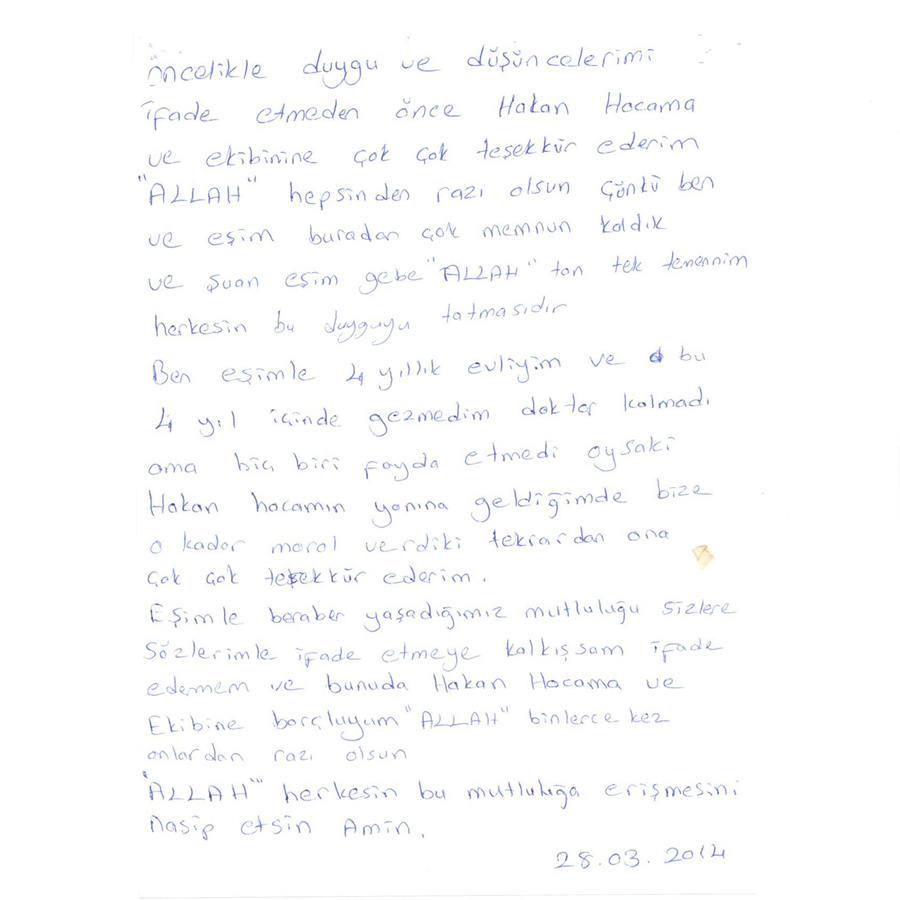 öncelikle duygu ve düşüncelerimi
ifade etmeden önce Hakan Hocama
ve ekibinine çok çok teşekkür ederim
"ALLAH" hepsinden razı olsun çünkü ben
ve eşim buradan çok memnun kaldık
ve şuan eşim gebe "ALLAH" tan tek temennim
herkesin bu duyguyu tatmasıdır
Ben eşimle 4 yıllık evliyim ve bu
4 yıl içinde gezmedim doktor kalmadı
ama hiç biri fayda etmedi oysaki
Hakan hocamın yanına geldiğimde bize
o kadar moral verdiki tekrardan ona
çok çok teşekkür ederim.
Eşimle beraber yaşadığımız mutluluğu sizlere
Sözlerimle ifade etmeye kalkışsam ifade
edemem ve bunuda Hakan Hocama ve
Ekibine borçluyum "ALLAH" binlerce kez
onlardan razı olsun
"ALLAH" herkesin bu mutluluğa erişmesini
Nasip etsin Amin.
28.03.2014